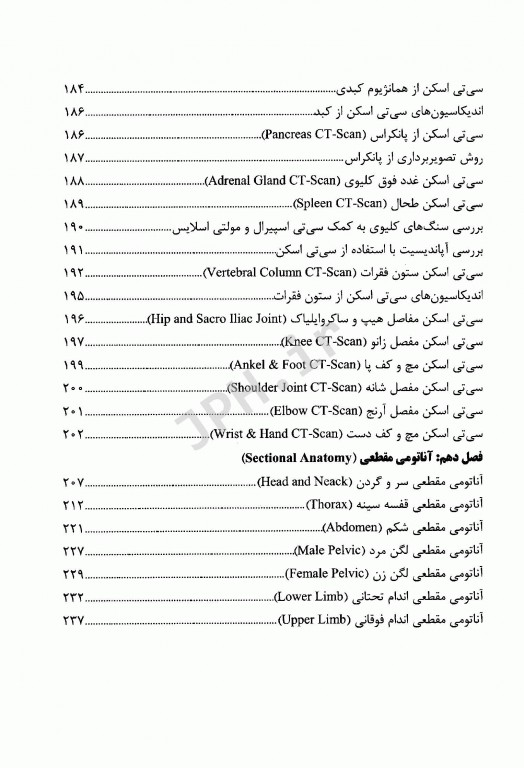 سی‌تی اسکن از همانژیوم کبدی................................................................۱۸۴
اندیکاسیون‌های سی‌تی اسکن از کبد................................................................۱۸۶
سی‌تی اسکن از پانکراس (Pancreas CT-Scan)................................................................۱۸۶
روش تصویربرداری از پانکراس................................................................۱۸۷
سی‌تی اسکن غدد فوق کلیوی (Adrenal Gland CT-Scan)................................................................۱۸۸
سی‌تی اسکن طحال (Spleen CT-Scan)................................................................۱۸۹
بررسی سنگ‌های کلیوی به کمک سی‌تی اسپیرال و مولتی اسلایس................................................................۱۹۰
بررسی آپاندیسیت با استفاده از سی‌تی اسکن................................................................۱۹۱
سی‌تی اسکن ستون فقرات (Vertebral Column CT-Scan)................................................................۱۹۲
اندیکاسیون‌های سی‌تی اسکن از ستون فقرات................................................................۱۹۵
سی‌تی اسکن مفاصل هیپ و ساکروایلیاک (Hip and Sacro Iliac Joint)................................................................۱۹۶
سی‌تی اسکن مفصل زانو (Knee CT-Scan)................................................................۱۹۷
سی‌تی اسکن مچ و کف پا (Ankel & Foot CT-Scan)................................................................۱۹۹
سی‌تی اسکن مفصل شانه (Shoulder Joint CT-Scan)................................................................۲۰۰
سی‌تی اسکن مفصل آرنج (Elbow CT-Scan)................................................................۲۰۱
سی‌تی اسکن مچ و کف دست (Wrist & Hand CT-Scan)................................................................۲۰۲
فصل دهم: آناتومی مقطعی (Sectional Anatomy)
آناتومی مقطعی سر و گردن (Head and Neack)................................................................۲۰۷
آناتومی مقطعی قفسه سینه (Thorax)................................................................۲۱۲
آناتومی مقطعی شکم (Abdomen)................................................................۲۲۱
آناتومی مقطعی لگن مرد (Male Pelvic)................................................................۲۲۷
آناتومی مقطعی لگن زن (Female Pelvic)................................................................۲۲۹
آناتومی مقطعی اندام تحتانی (Lower Limb)................................................................۲۳۲
آناتومی مقطعی اندام فوقانی (Upper Limb)................................................................۲۳۷
JPH.ir